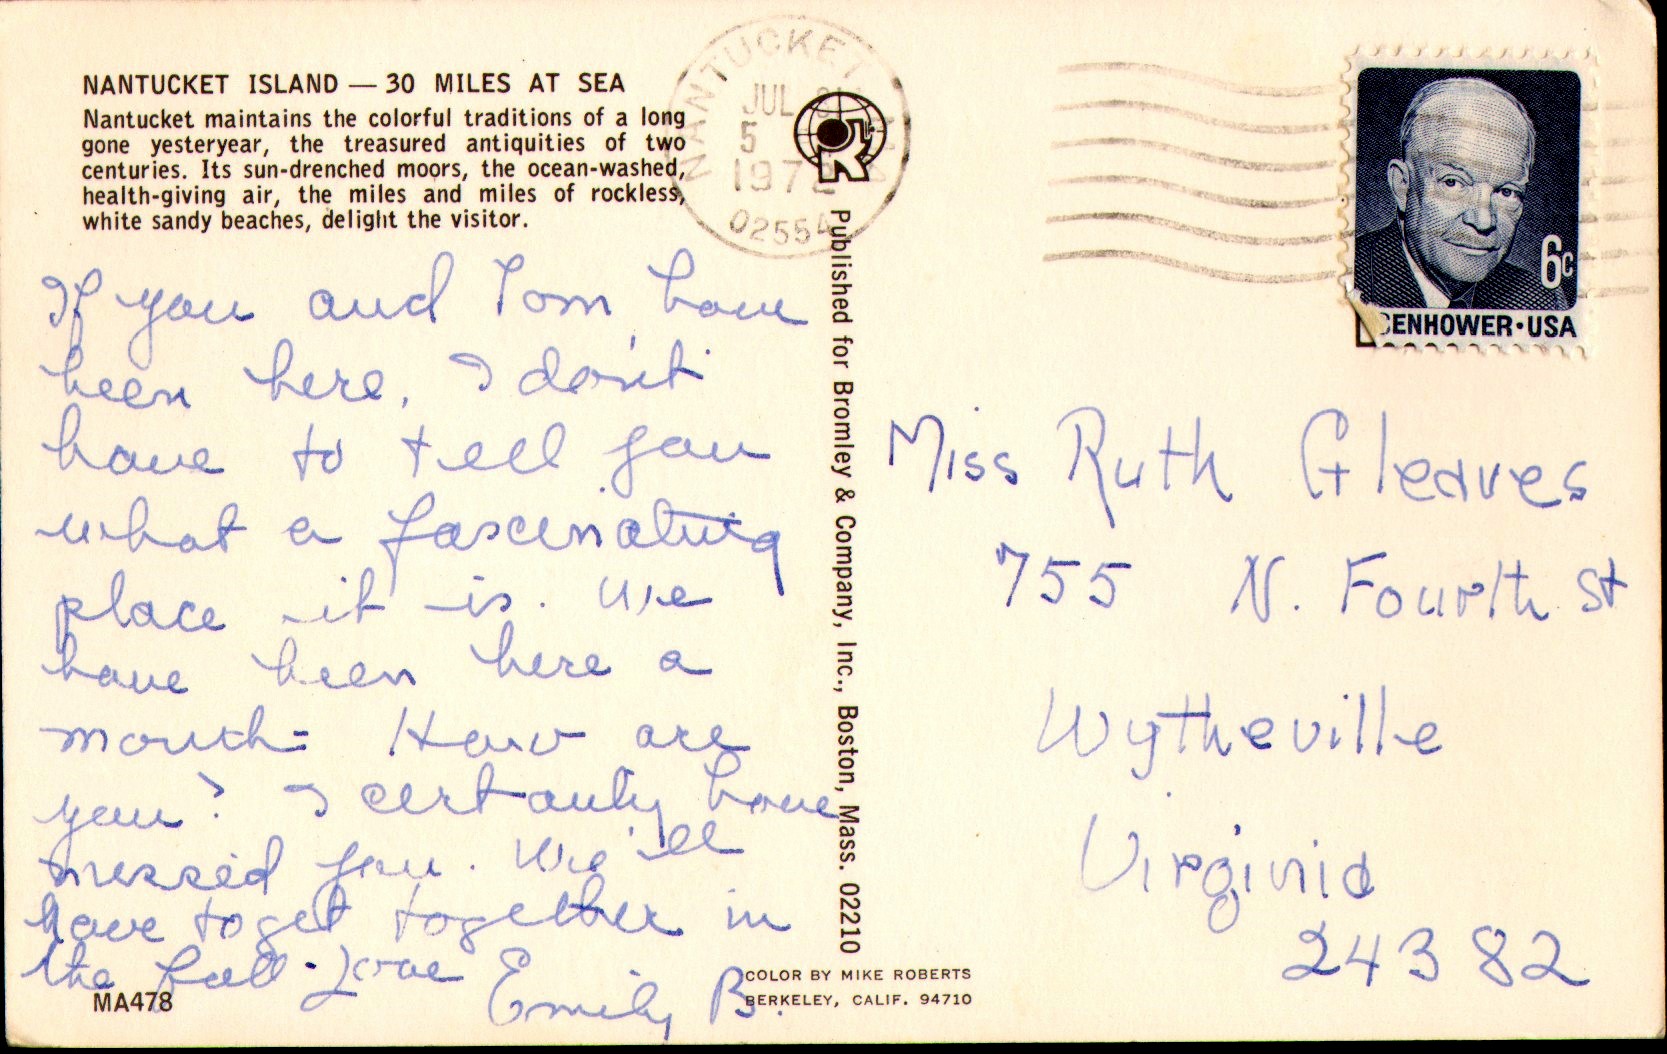 NANTUCKET ISLAND — 30 MILES AT SEA
Nantucket maintains the colorful traditions of a long
gone yesteryear, the treasured antiquities of two
centuries. Its sun-drenched moors, the ocean-washed,
health-giving air, the miles and miles of rockless,
white sandy beaches, delight the visitor.
NANTUCKET
JUL
5
1972
02554
R
6c
EISENHOWER·USA
If you and Tom have
been here, I don't
have to tell you
what a fascinating
place it is. We
have been here a
month - How are
you? I certainly have
missed you. We'll
have to get together in
the fall - Love
Emily B.
MA478
Published for Bromley & Company, Inc., Boston, Mass. 02210
Miss Ruth Gleaves
755 N. Fourth St
Wytheville
Virginia
24382
COLOR BY MIKE ROBERTS
BERKELEY, CALIF. 94710